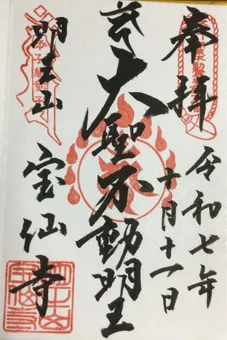 奉拝
令和七年
十月十一日
大聖不動明王
明王山
宝仙寺